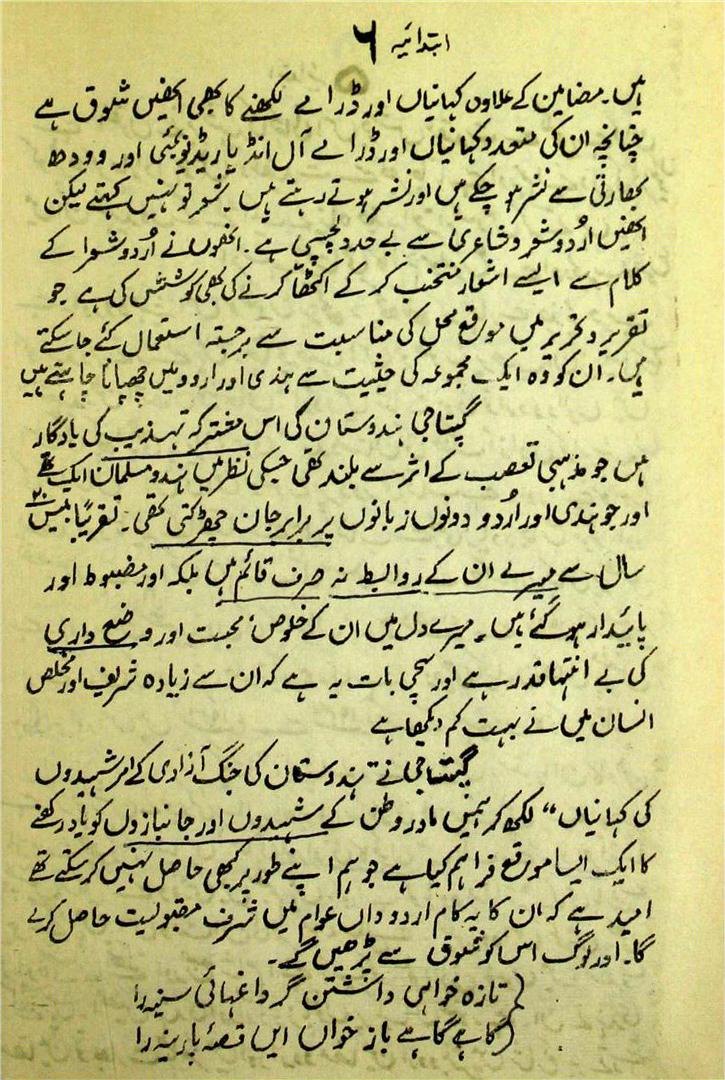 ابتدائیہ ۶
ہیں۔ مضامین کے علاوہ کہانیاں اور ڈرامے لکھنے کا بھی انھیں شوق ہے
چنانچہ ان کی متعدد کہانیاں اور ڈرامے آل انڈیا ریڈیو بمبئی اور وودھ
بھارتی سے نشر ہو چکے ہیں اور نشر ہوتے رہتے ہیں۔ شعر تو نہیں کہتے لیکن
انھیں اُردو شعر و شاعری سے بے حد دلچسپی ہے۔ انھوں نے اُردو شعرا کے
کلام سے ایسے اشعار منتخب کر کے اکھٹا کرنے کی بھی کوشش کی ہے جو
تقریر و تحریر میں موقع محل کی مناسبت سے برجستہ استعمال کئے جا سکتے
ہیں۔ ان کو وہ ایک مجموعہ کی حیثیت سے ہندی اور اردو میں چھپانا چاہتے ہیں
گپتا جی ہندوستان کی اس مشترکہ تہذیب کی یادگار
ہیں جو مذہبی تعصب کے اثر سے بلند تھی جسکی نظر میں ہندو مسلمان ایک تھے
اور جو ہندی اور اُردو دونوں زبانوں پر برابر جان چھڑکتی تھی۔ تقریباً بیس ۲۰
سال سے میرے ان کے روابط نہ صرف قائم ہیں بلکہ اور مضبوط اور
پائیدار ہو گئے ہیں۔ میرے دل میں ان کے خلوص، محبت اور وضع داری
کی بے انتہا قدر ہے اور سچی بات یہ ہے کہ ان سے زیادہ شریف اور مخلص
انسان میں نے بہت کم دیکھا ہے
گپتا جی نے "ہندوستان کی جنگ آزادی کے امر شہیدوں
کی کہانیاں" لکھ کر ہمیں مادر وطن کے شہیدوں اور جانبازوں کو یاد رکھنے
کا ایک ایسا موقع فراہم کیا ہے جو ہم اپنے طور پر کبھی حاصل نہیں کر سکتے تھے
امید ہے کہ ان کا یہ کام اردو داں عوام میں شرف مقبولیت حاصل کرے
گا۔ اور لوگ اس کو شوق سے پڑھیں گے۔
(تازہ خواہی داشتن گر داغہائی سینہ را
(گاہے گاہے باز خواں ایں قصۂ پارینہ را